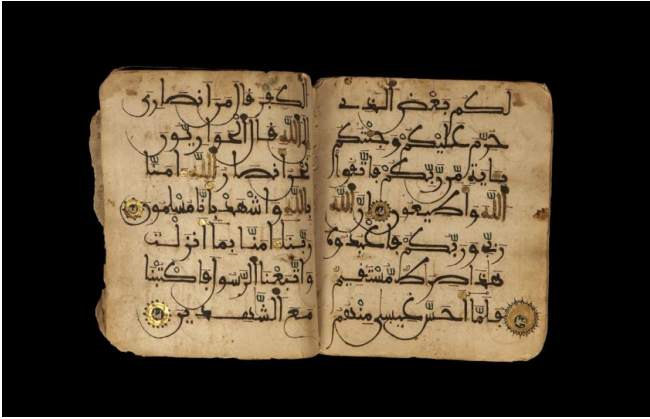 لكم بعض الذي
حرّم عليكم وجئتكم
بآية من رّبّكم فاتّقوا
الله وأطيعون إنّ الله
ربّي وربّكم فاعبدوه
هذا صرط مّستقيم
فلمّا أحسّ عيسى منهم
الكفر قال من أنصاري
إلى الله قال الحواريّون
نحن أنصار الله آمنّا
بالله واشهد بأنّا مسلمون
ربّنا آمنّا بما أنزلت
واتّبعنا الرّسول فاكتبنا
مع الشّهدين